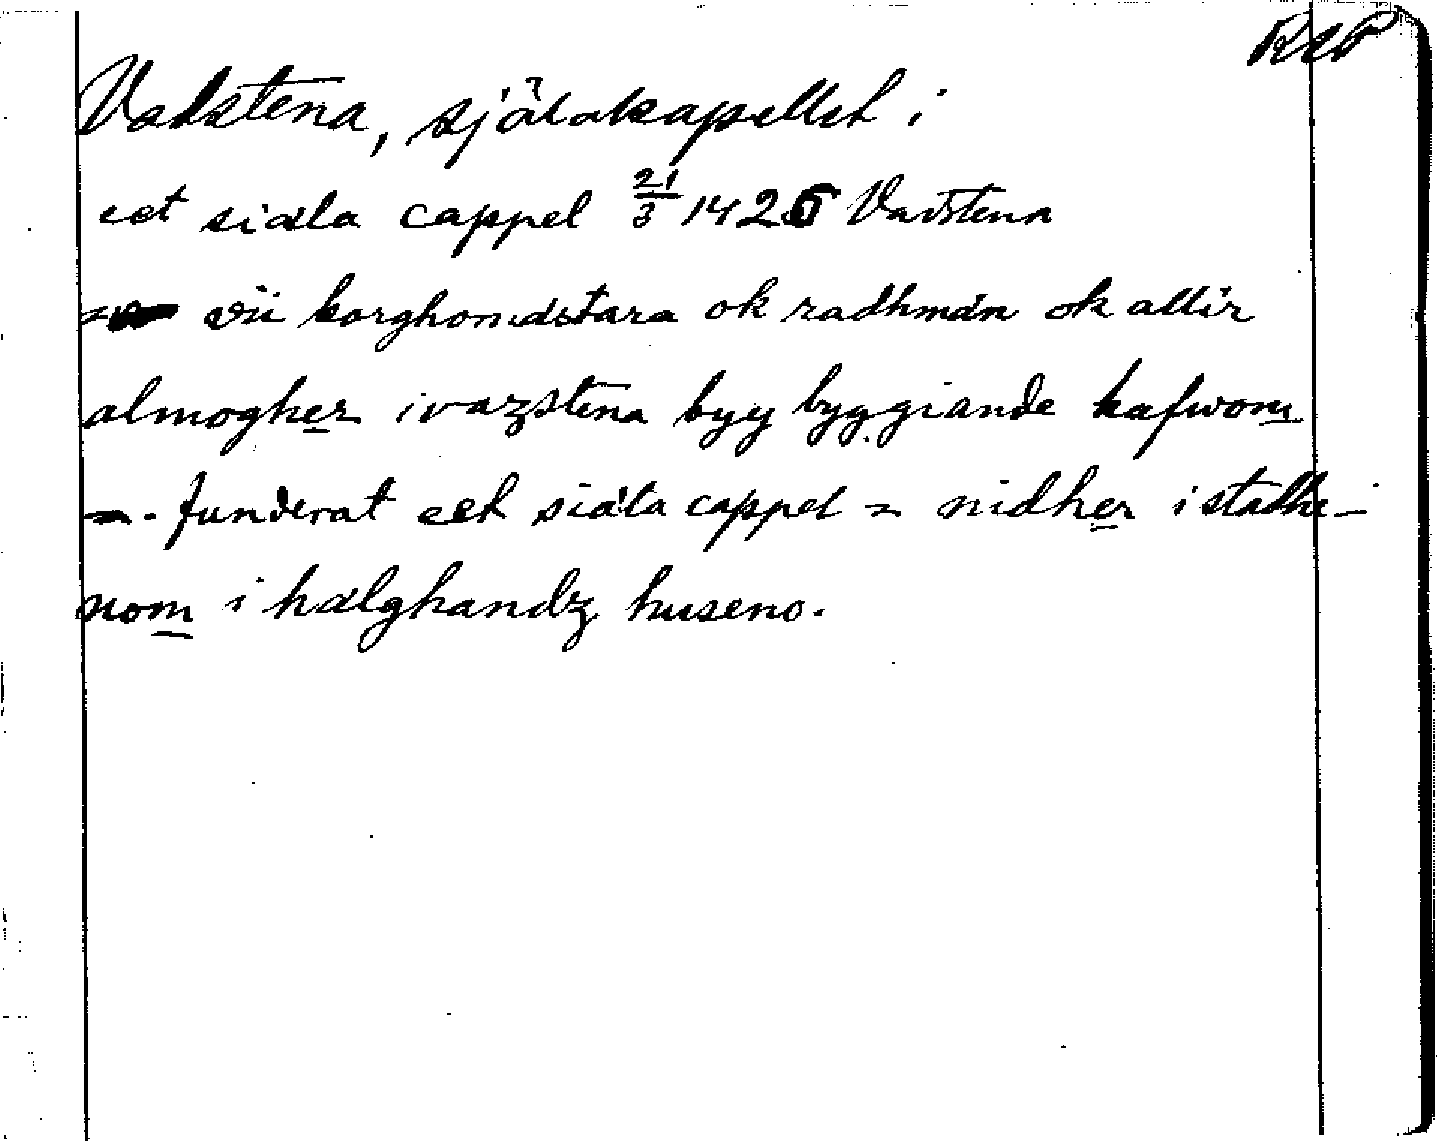 RAP
Vadstena, själakapellet i
eet siæla cappel 21/3 1426 Vadstena
= vii borghomæstara ok radhmæn ok allir
almogher i vazstena byy byggiande hafwom
=. funderat eet siæla cappel = nidher i stadhe-
nom i hælghandz huseno.